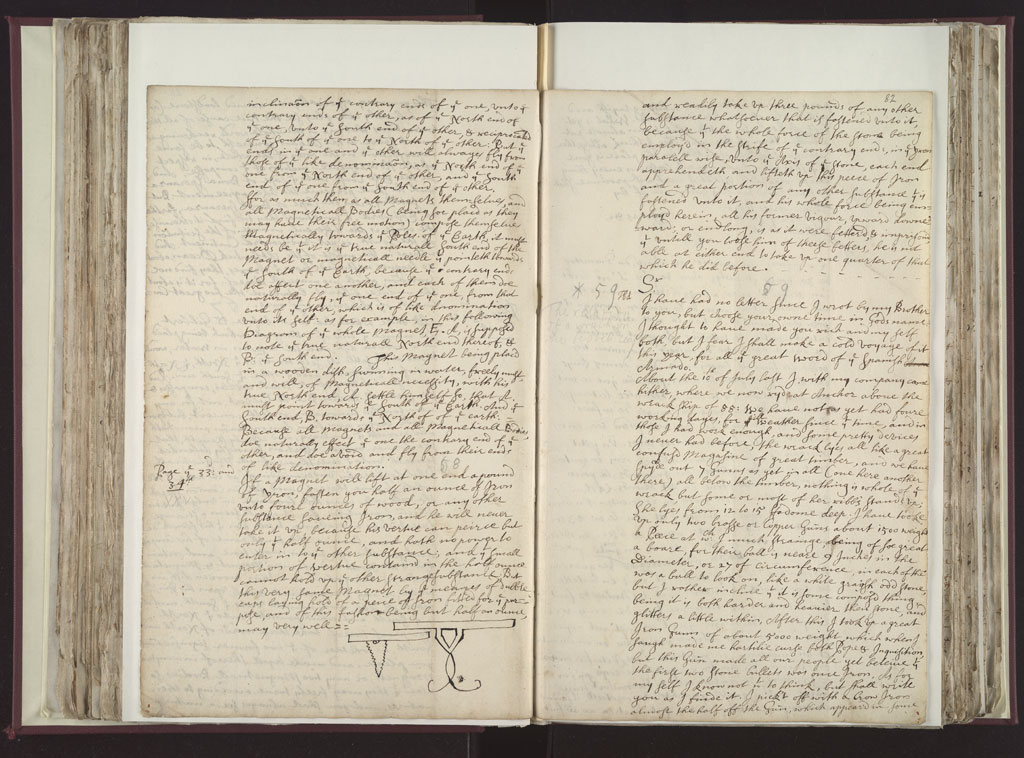 inclination of yͤ contrary ends of yͤ one, unto yͤ
contrary ends of yͤ other, as of yͤ North end of
yͤ one, unto yͤ South end of yͤ other, & reciprocated
of yͤ South of yͤ one to yͤ North of yͤ other. But yͤ
ends in yͤ one and yͤ other will always fly from
those of yͤ like denomination, as yͤ North end of yͤ
one from yͤ North end of yͤ other, and yͤ South
end of yͤ one from yͤ South end of yͤ other.
ffor as much then as all Magnets themselves, and
all Magneticall Bodies (being soe placed as they
may have their free motion) compose themselves
Magnetically towards yͤ Poles of yͤ Earth, it must
needs be yͭ it is yͤ true naturall South end of the
Magnet or magneticall needle yͭ pointeth towards
yͤ South of yͤ Earth, because yͤ contrary ends
doe affect one another, and each of them doe
naturally fly yͤ one end of yͤ one, from that
end of yͤ other, which is of like denomination
unto its self: as for example, in this following
Diagram of yͤ whole Magnet
to note yͤ true naturall North end thereof, &
B: yͤ South end. This Magnet being placed
in a wooden dish, swimming in water, freely must
and will, of Magneticall necessity, with his
true North end, A, settle himself so, that A.
must point towards yͤ South of yͤ Earth. And yͤ
South end, B. towards yͤ North of yͤ earth.
Because all Magnets and all Magneticall Bodies
doe naturally effect yͤ one the contrary end of yͤ
other, and doe avoid and fly from their ends
of like denomination.
58
Page yͤ 33: and
34ᵗʰ
If a Magnet will lift at one end a pound
of Yron, fasten you half an ounce of Iron
unto foure ounces of wood, or any other
substance saveing Iron, and he will never
take it up: because his vertue can peirce but
only yͤ half ounce, and hath no power to
enter in to yͤ other substance; and yͤ small
portion of vertue contained in the half ounce
cannot hold up yͤ other strange substance. But
this very same Magnet by yͤ meanes of double
caps laying hold of a peice of Iron fitted for yͤ pur-
pose, and of this fashion being but half an ounce,
may very well =:
82
and readily take up three pounds of any other
substance whatsoever that is fastened unto it,
because yͭ the whole force of the stone being
employed in the strife of yͤ contrary ends, in yͤ
paralell wise, unto yͤ Axis of yͤ stone, each end
apprehendeth and lifteth up this peece of Iron
and a great portion of any other substance yͭ is
fastened unto it, and his whole force being em-
ployed herein, all his former vigour, upward downe-
ward, or endlong, is as it were fettered & imprisoned
yͭ untill you loose him of these fetters, he is not
able at either end to take up one quarter of that
which he did before.
59
* 59
Sʳ
I have had no letter since I wrot by my Brother
to you, but choose your owne time in Gods name
I thought to have made you rich and my self
both but I fear I shall make a cold voyage of it
this year, for all yͤ great word of yͤ Spanish
Armado.
About the 10 of July last I with my company came
hither where we now ride at Anchor above the
wrack ship of 88: We have not as yet had foure
working dayes, for yͤ weather since yͤ time, and in
those I had work enough, and some pretty devices
I never had before, The wrack lyes all like a great
confused Magazine of great timber, and we have
spyed out 7 Gunns as yet in all (one here another
there) all below the timber, nothing is whole of yͤ
wrack but some or most of her ribbs stand up,
she lyes from 12 to 15 fadome deep. I have tooke
up only two brasse or Copper Guns about 1500 weight
a Peece at wᶜʰ I much strainge, being of soe great
a boare, for their ball is neare 9 Inches in the
Diameter, or 27 of circumference, in each of the
was a ball to look on, like a while graiyh odd stone,
but I rather incline yͭ it is some composed thing
being it is both harder and heavier then stone, and
glitters a little within. After this I took up a great
Iron Gunn of about 5000 weight, which when I
saugh made me hartilie curse both Pope & Inquisition
but this Gun made all our people yet beleive yͭ
the first two stone bullets was once Iron, As for
my self I know not wᵗ to think, but shall write
you as I finde it. I pickt off with a Crow Iron
almose the half off the Gun, which appeared in some